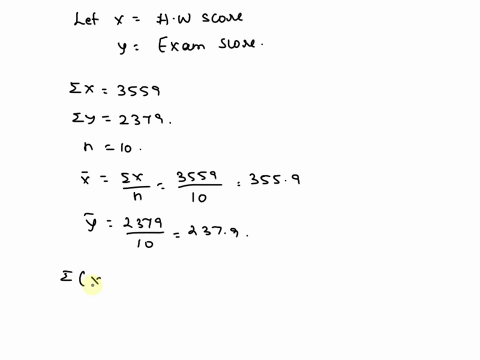 Let x = H.W score
y = Exam score.
Σx = 3559
Σy = 2379.
n = 10.
x̄ = Σx/n = 3559/10 = 355.9
ȳ = 2379/10 = 237.9.
Σ(x